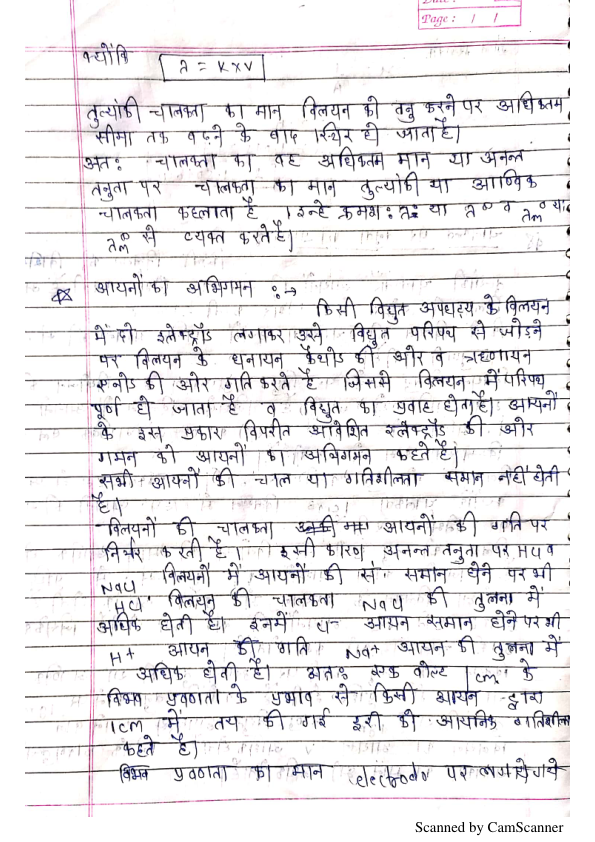 Page : / /
क्योंकि
λ = K×V
तुल्यांकी चालकता का मान विलयन को तनु करने पर अधिकतम
सीमा तक बढने के बाद स्थिर हो जाता है।
अतः चालकता का वह अधिकतम मान या अनन्त
तनुता पर चालकता का मान तुल्यांकी या आण्विक
चालकता कहलाता है । इन्हे क्रमश: या व या
से व्यक्त करते है।
आयनों का अभिगमन :→
किसी विद्युत अपघट्य के विलयन
में दो इलेक्ट्रॉड लगाकर उसे विद्युत परिपथ से जोड़ने
पर विलयन के धनायन कैथोड की ओर व ऋणायन
एनोड की ओर गति करते है जिससे विलयन में परिपथ
पूर्ण हो जाता है व विद्युत का प्रवाह होता है। आयनों
के इस प्रकार विपरीत आवेशित इलेक्ट्रॉड की ओर
गमन को आयनों का अभिगमन कहते है।
सभी आयनों की चाल या गतिशीलता समान नहीं होती
है।
विलयनों की चालकता आयनों की गति पर
निर्भर करती है। इसी कारण अनन्त तनुता पर HCl व
NaCl विलयनों में आयनों की सं समान होने पर भी
HCl विलयन की चालकता NaCl की तुलना में
अधिक होती है। इनमें Cl- आयन समान होने पर भी
H+ आयन की गति Na+ आयन की तुलना में
अधिक होती है। अतः एक वोल्ट / cm के
विभव प्रवणता के प्रभाव से किसी आयन द्वारा
1cm में तय की गई दूरी को आयनिक गतिशीलता
कहते है।
विभव प्रवणता का मान electrode पर लगाये गये
Scanned by CamScanner